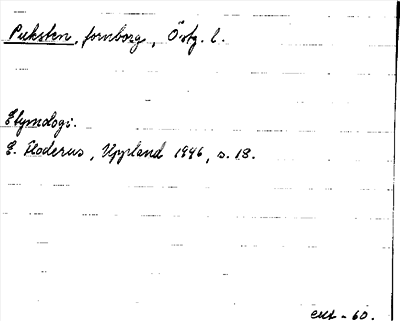 Puksten, fornborg, Östg. l.
Etymologi.
E. Floderus, Uppland 1946, s. 18.
- 60.